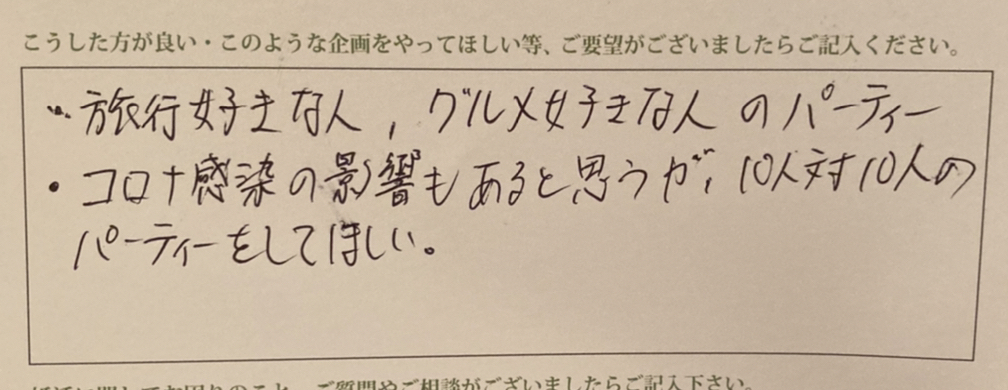 こうした方が良い・このような企画をやってほしい等、ご要望がございましたらご記入ください。
・旅行好きな人,グルメ好きな人のパーティー
・コロナ感染の影響もあると思うが、10人対10人の
パーティーをしてほしい。
ご質問やご相談がございましたらご記入下さい。